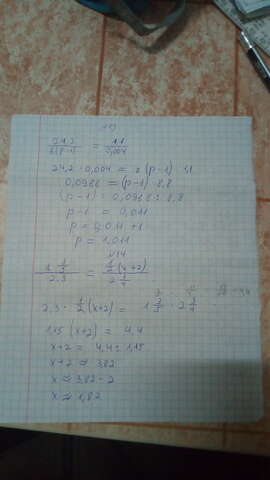 24,2 / 8(p-1) = 1,1 / 0,004
24,2 · 0,004 = 8 (p-1) · 1,1
0,0968 = (p-1) · 8,8
(p-1) = 0,0968 : 8,8
p-1 = 0,011
p = 0,011 + 1
p = 1,011
√14
/ 2,3 = 1/2 (x+2) / 2
2,3 · 1/2 (x+2) =
1,15 (x+2) = 4,4
x+2 = 4,4 : 1,15
x+2 ≈ 3,82
x ≈ 3,82 - 2
x ≈ 1,82